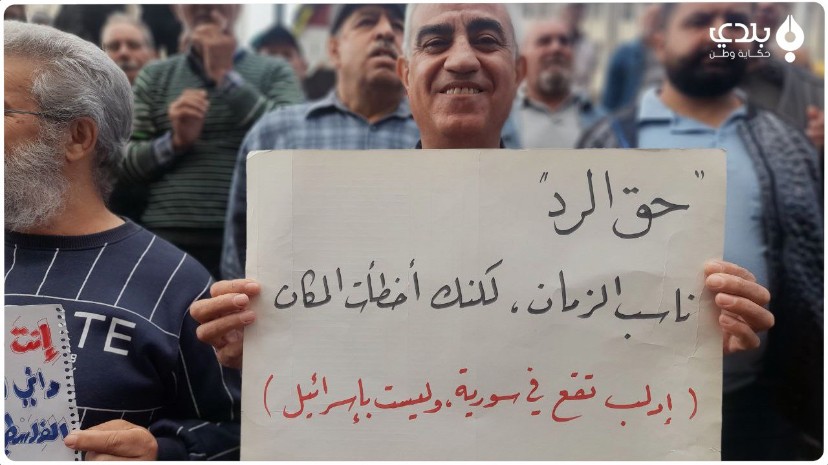 بلدي
حكاية وطن
"حق الرد"
ناسب الزمان، لكنك أخطأت المكان
(إدلب تقع في سورية، وليست بإسرائيل)
إنت
TE